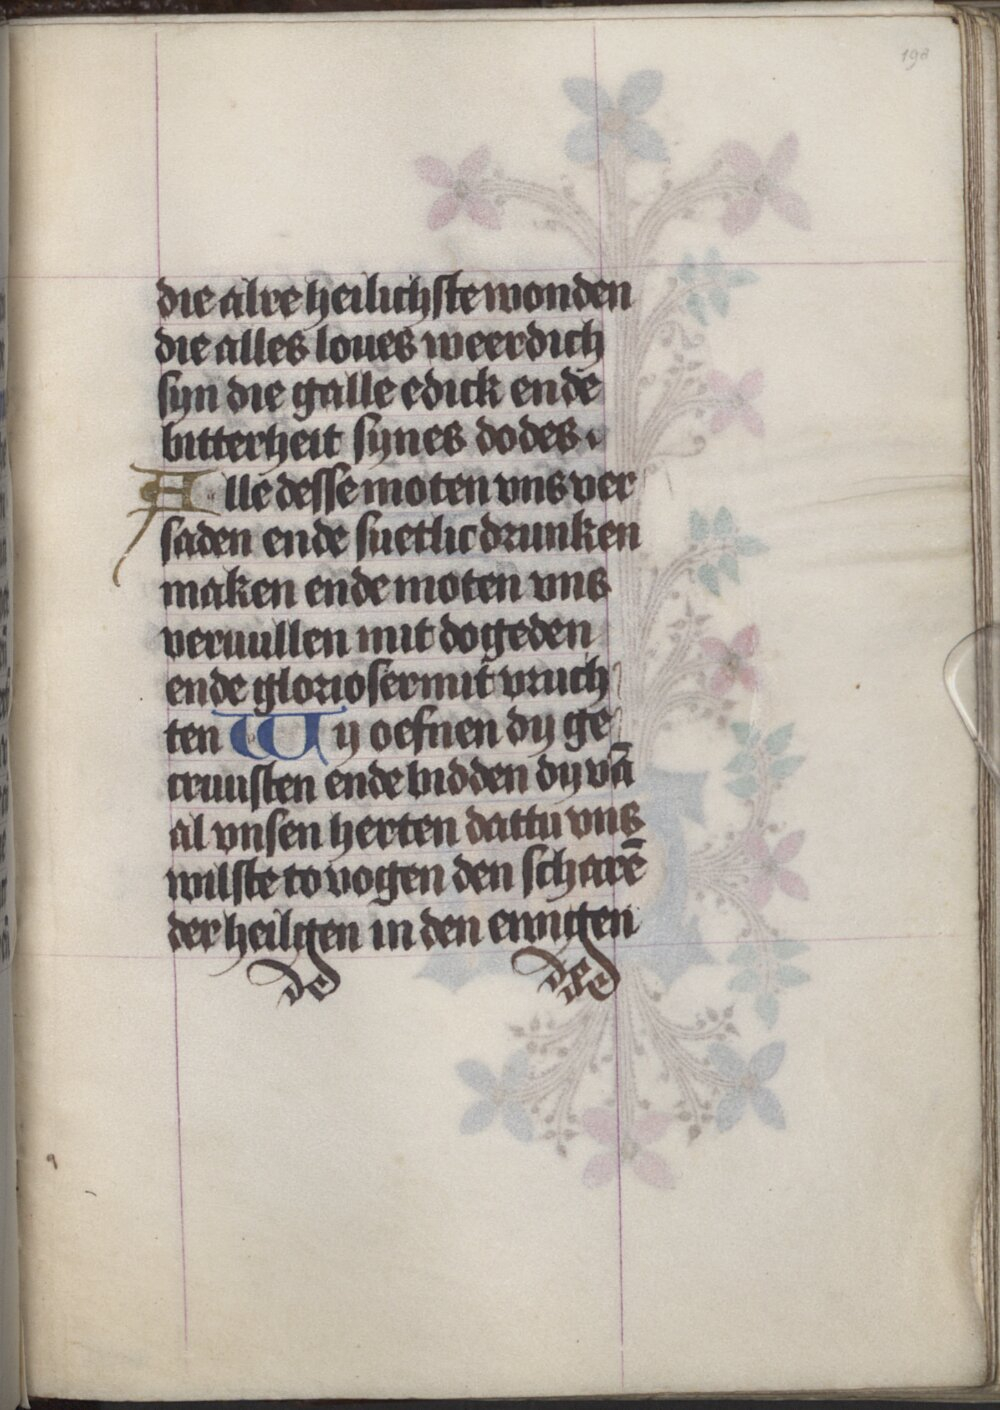 198
die alre heilichste wonden
die alles loues weerdich
syn die galle edick ende
bitterheit synes dodes.
Alle desse moten vns ver
saden ende suetlic drunken
maken ende moten vns
veruullen mit dogeden
ende glorioser mit vruch
ten Wy oefnen dy ge
truusten ende bidden dy vā
al vnsen herten dattu vns
wilste to vogen den scharē
der heilgen in den ewigen